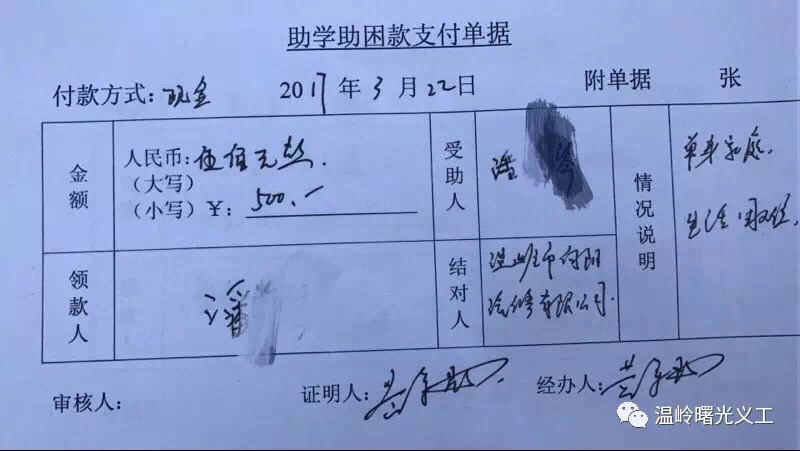 助学助困款支付单据
付款方式：现金 2017年3月22日 附单据 张
金额
人民币：伍佰元整.
（大写）
（小写）￥：500.-
受助人
潘
情况说明
单亲家庭.
生活困难.
领款人
潘
结对人
温岭市向阳
汽修有限公司.
审核人： 证明人： 经办人：
温岭曙光义工